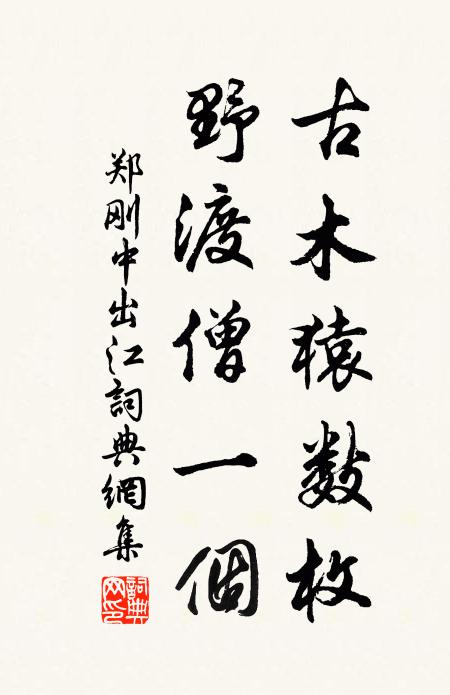 古木猿数枚
野渡僧一個
郑刚中出江詞典網集
詞典網印